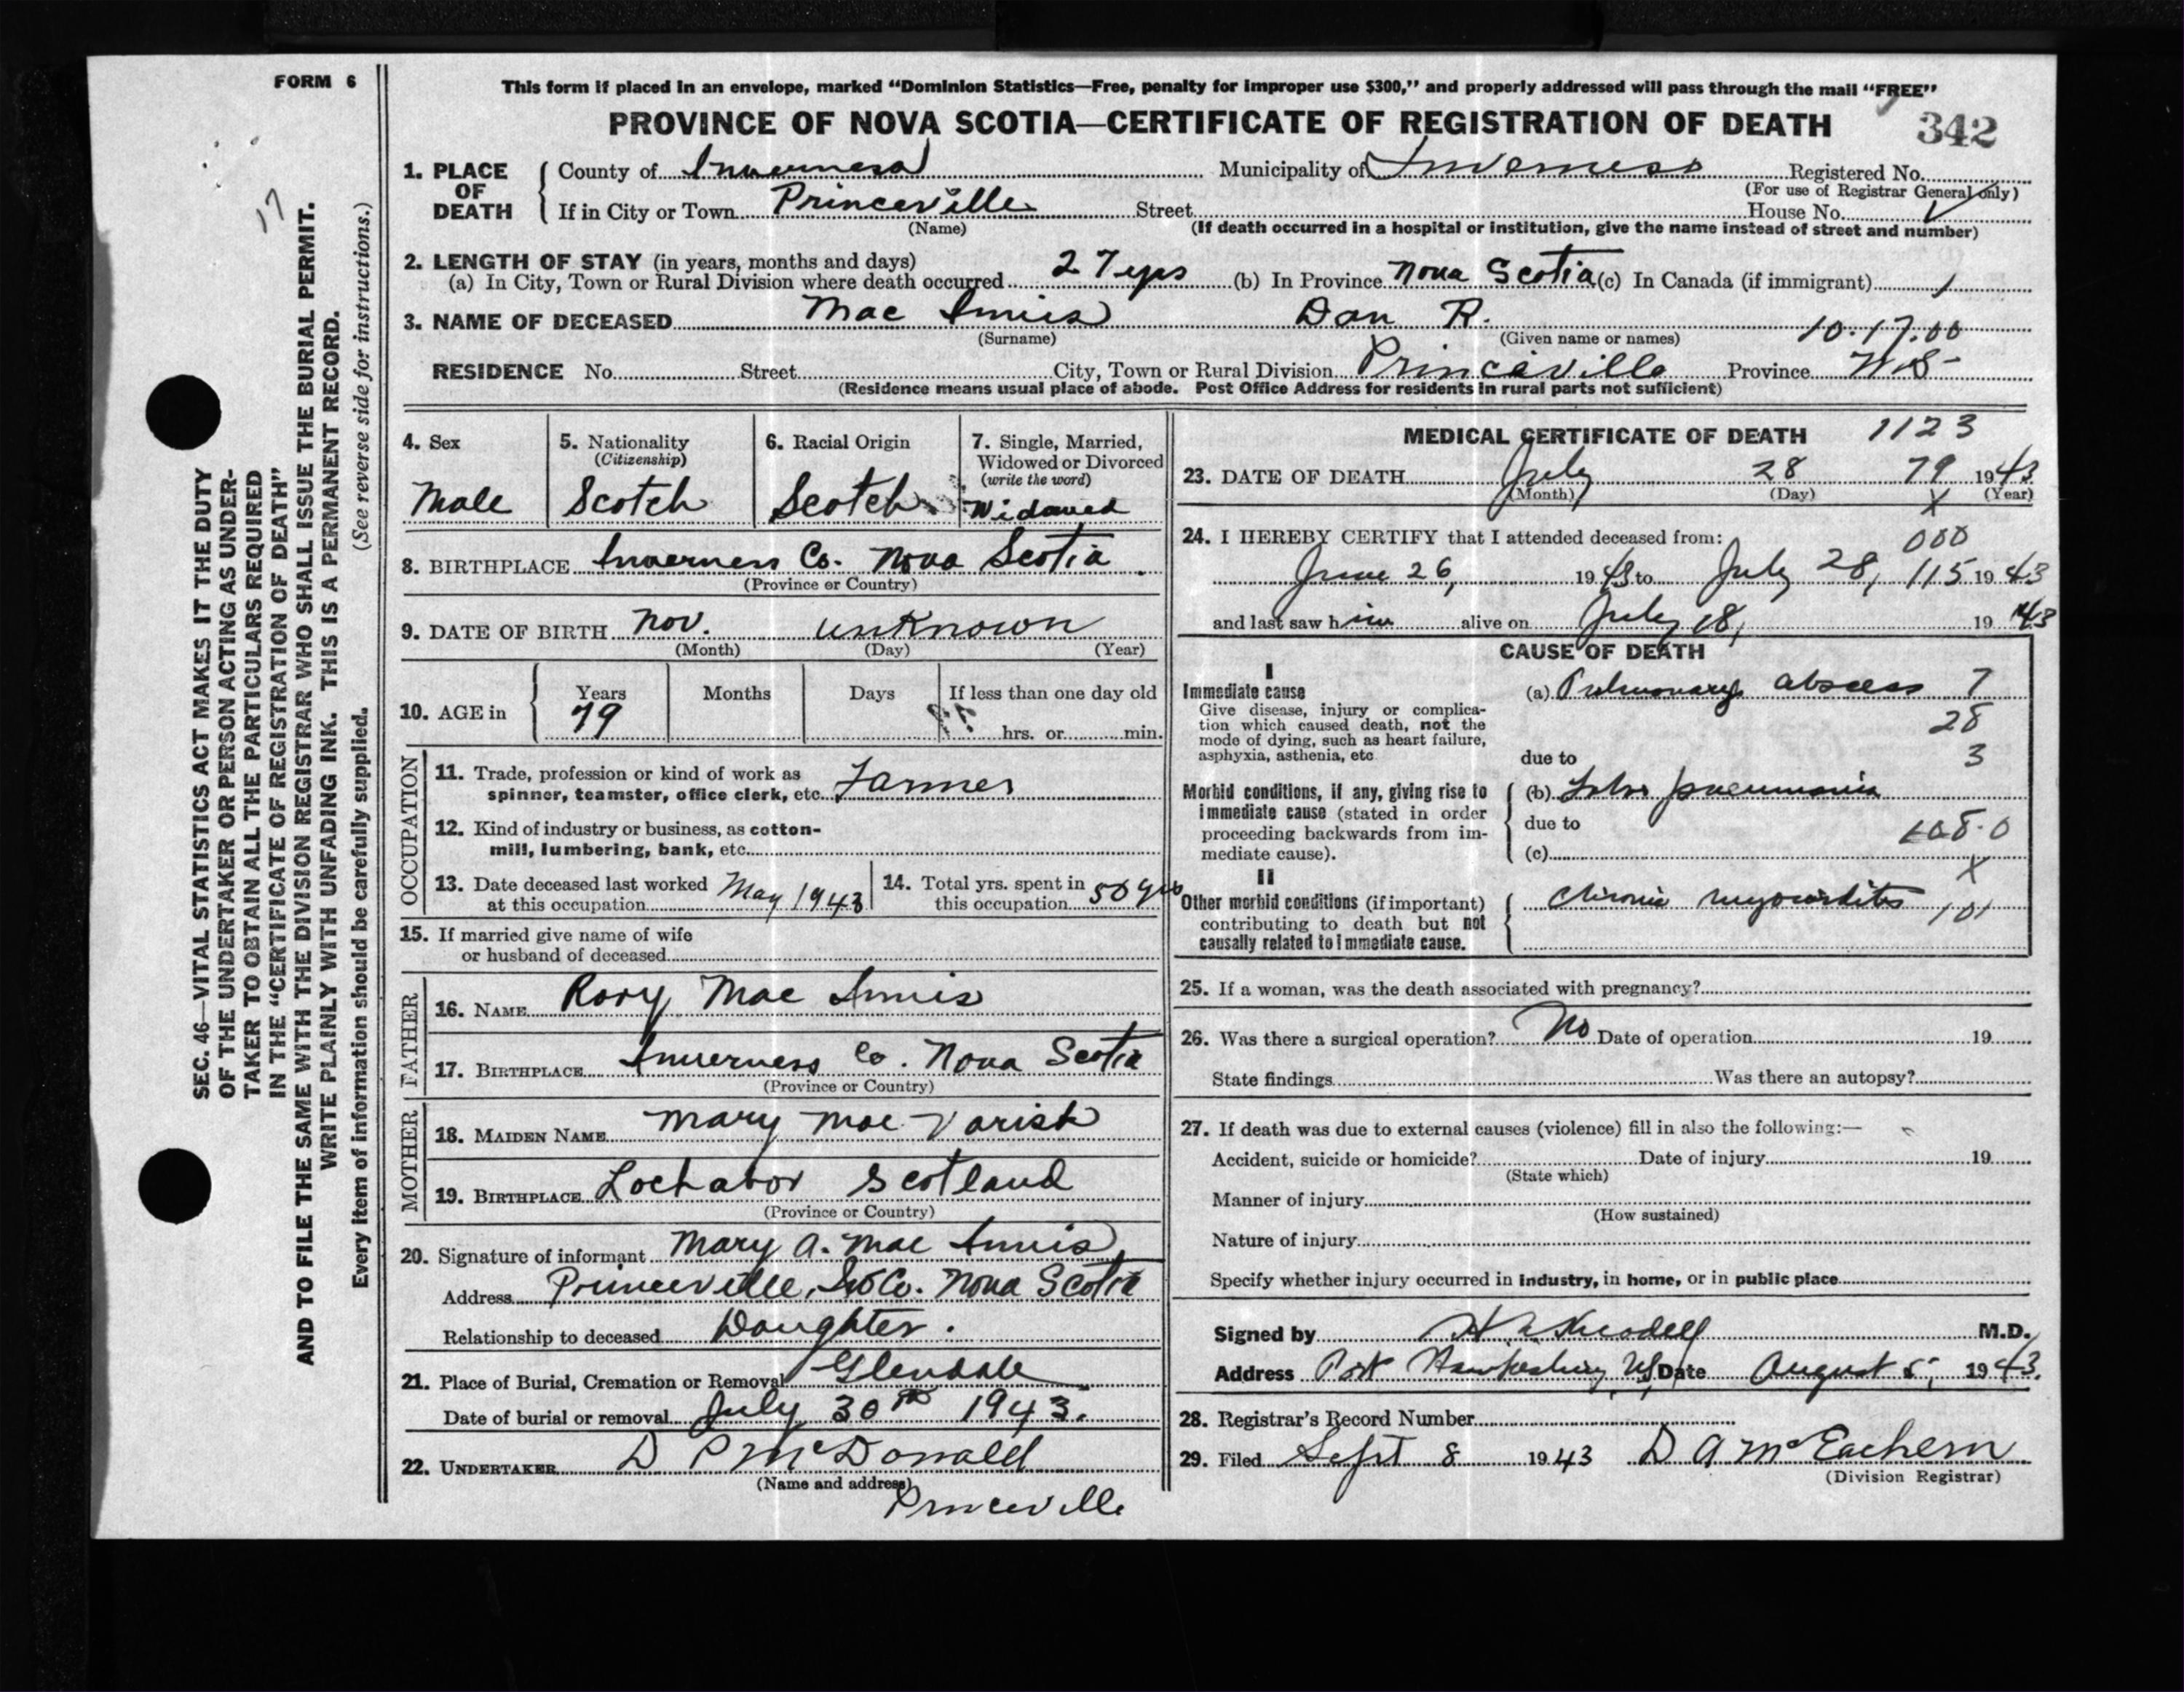 FORM 6
This form if placed in an envelope, marked "Dominion Statistics—Free, penalty for improper use $300," and properly addressed will pass through the mail "FREE"
PROVINCE OF NOVA SCOTIA—CERTIFICATE OF REGISTRATION OF DEATH
342
17
SEC. 46—VITAL STATISTICS ACT MAKES IT THE DUTY
OF THE UNDERTAKER OR PERSON ACTING AS UNDER-
TAKER TO OBTAIN ALL THE PARTICULARS REQUIRED
IN THE "CERTIFICATE OF REGISTRATION OF DEATH"
AND TO FILE THE SAME WITH THE DIVISION REGISTRAR WHO SHALL ISSUE THE BURIAL PERMIT.
WRITE PLAINLY WITH UNFADING INK. THIS IS A PERMANENT RECORD.
Every item of information should be carefully supplied. (See reverse side for instructions.)
1. PLACE OF DEATH County of Inverness Municipality of Inverness Registered No.
(For use of Registrar General only)
If in City or Town Princeville Street House No.
(Name) (If death occurred in a hospital or institution, give the name instead of street and number)
2. LENGTH OF STAY (in years, months and days)
(a) In City, Town or Rural Division where death occurred 27 yrs (b) In Province Nova Scotia (c) In Canada (if immigrant)
3. NAME OF DECEASED Mac Innis Dan R.
(Surname) (Given name or names) 10.17.00
RESIDENCE No. Street City, Town or Rural Division Princeville Province N.S.
(Residence means usual place of abode. Post Office Address for residents in rural parts not sufficient)
4. Sex
Male
5. Nationality
(Citizenship)
Scotch
6. Racial Origin
Scotch
7. Single, Married,
Widowed or Divorced
(write the word)
Widowed
8. BIRTHPLACE Inverness Co. Nova Scotia
(Province or Country)
9. DATE OF BIRTH Nov. unknown
(Month) (Day) (Year)
10. AGE in Years Months Days If less than one day old
79 hrs. or min.
OCCUPATION
11. Trade, profession or kind of work as
spinner, teamster, office clerk, etc. Farmer
12. Kind of industry or business, as cotton-
mill, lumbering, bank, etc.
13. Date deceased last worked
at this occupation May 1943
14. Total yrs. spent in
this occupation 50 yrs
15. If married give name of wife
or husband of deceased
FATHER
16. NAME Rory Mac Innis
17. BIRTHPLACE Inverness Co. Nova Scotia
(Province or Country)
MOTHER
18. MAIDEN NAME Mary Mac Varish
19. BIRTHPLACE Lochabor Scotland
(Province or Country)
20. Signature of informant Mary A. Mac Innis
Address Princeville, Co. Nova Scotia
Relationship to deceased Daughter.
21. Place of Burial, Cremation or Removal Glendale
Date of burial or removal July 30th 1943.
22. UNDERTAKER D P McDonald
(Name and address)
Princeville
MEDICAL CERTIFICATE OF DEATH 1123
23. DATE OF DEATH July 28 79 1943
(Month) (Day) X (Year)
24. I HEREBY CERTIFY that I attended deceased from: 000
June 26, 1943 to July 28, 115 1943
and last saw him alive on July 18, 1943
CAUSE OF DEATH
I
Immediate cause
Give disease, injury or complica-
tion which caused death, not the
mode of dying, such as heart failure,
asphyxia, asthenia, etc
(a) Pulmonary abscess 7
28
due to 3
Morbid conditions, if any, giving rise to
immediate cause (stated in order
proceeding backwards from im-
mediate cause).
(b) Lobar pneumonia
due to 108.0
(c)
X
II
Other morbid conditions (if important)
contributing to death but not
causally related to immediate cause.
Chronic myocarditis 101
25. If a woman, was the death associated with pregnancy?
26. Was there a surgical operation? No Date of operation 19
State findings Was there an autopsy?
27. If death was due to external causes (violence) fill in also the following:—
Accident, suicide or homicide? Date of injury 19
(State which)
Manner of injury
(How sustained)
Nature of injury
Specify whether injury occurred in industry, in home, or in public place
Signed by M.D.
Address Port Hawkesbury, NS Date August 5, 1943.
28. Registrar's Record Number
29. Filed Sept 8 1943 D A McEachern
(Division Registrar)